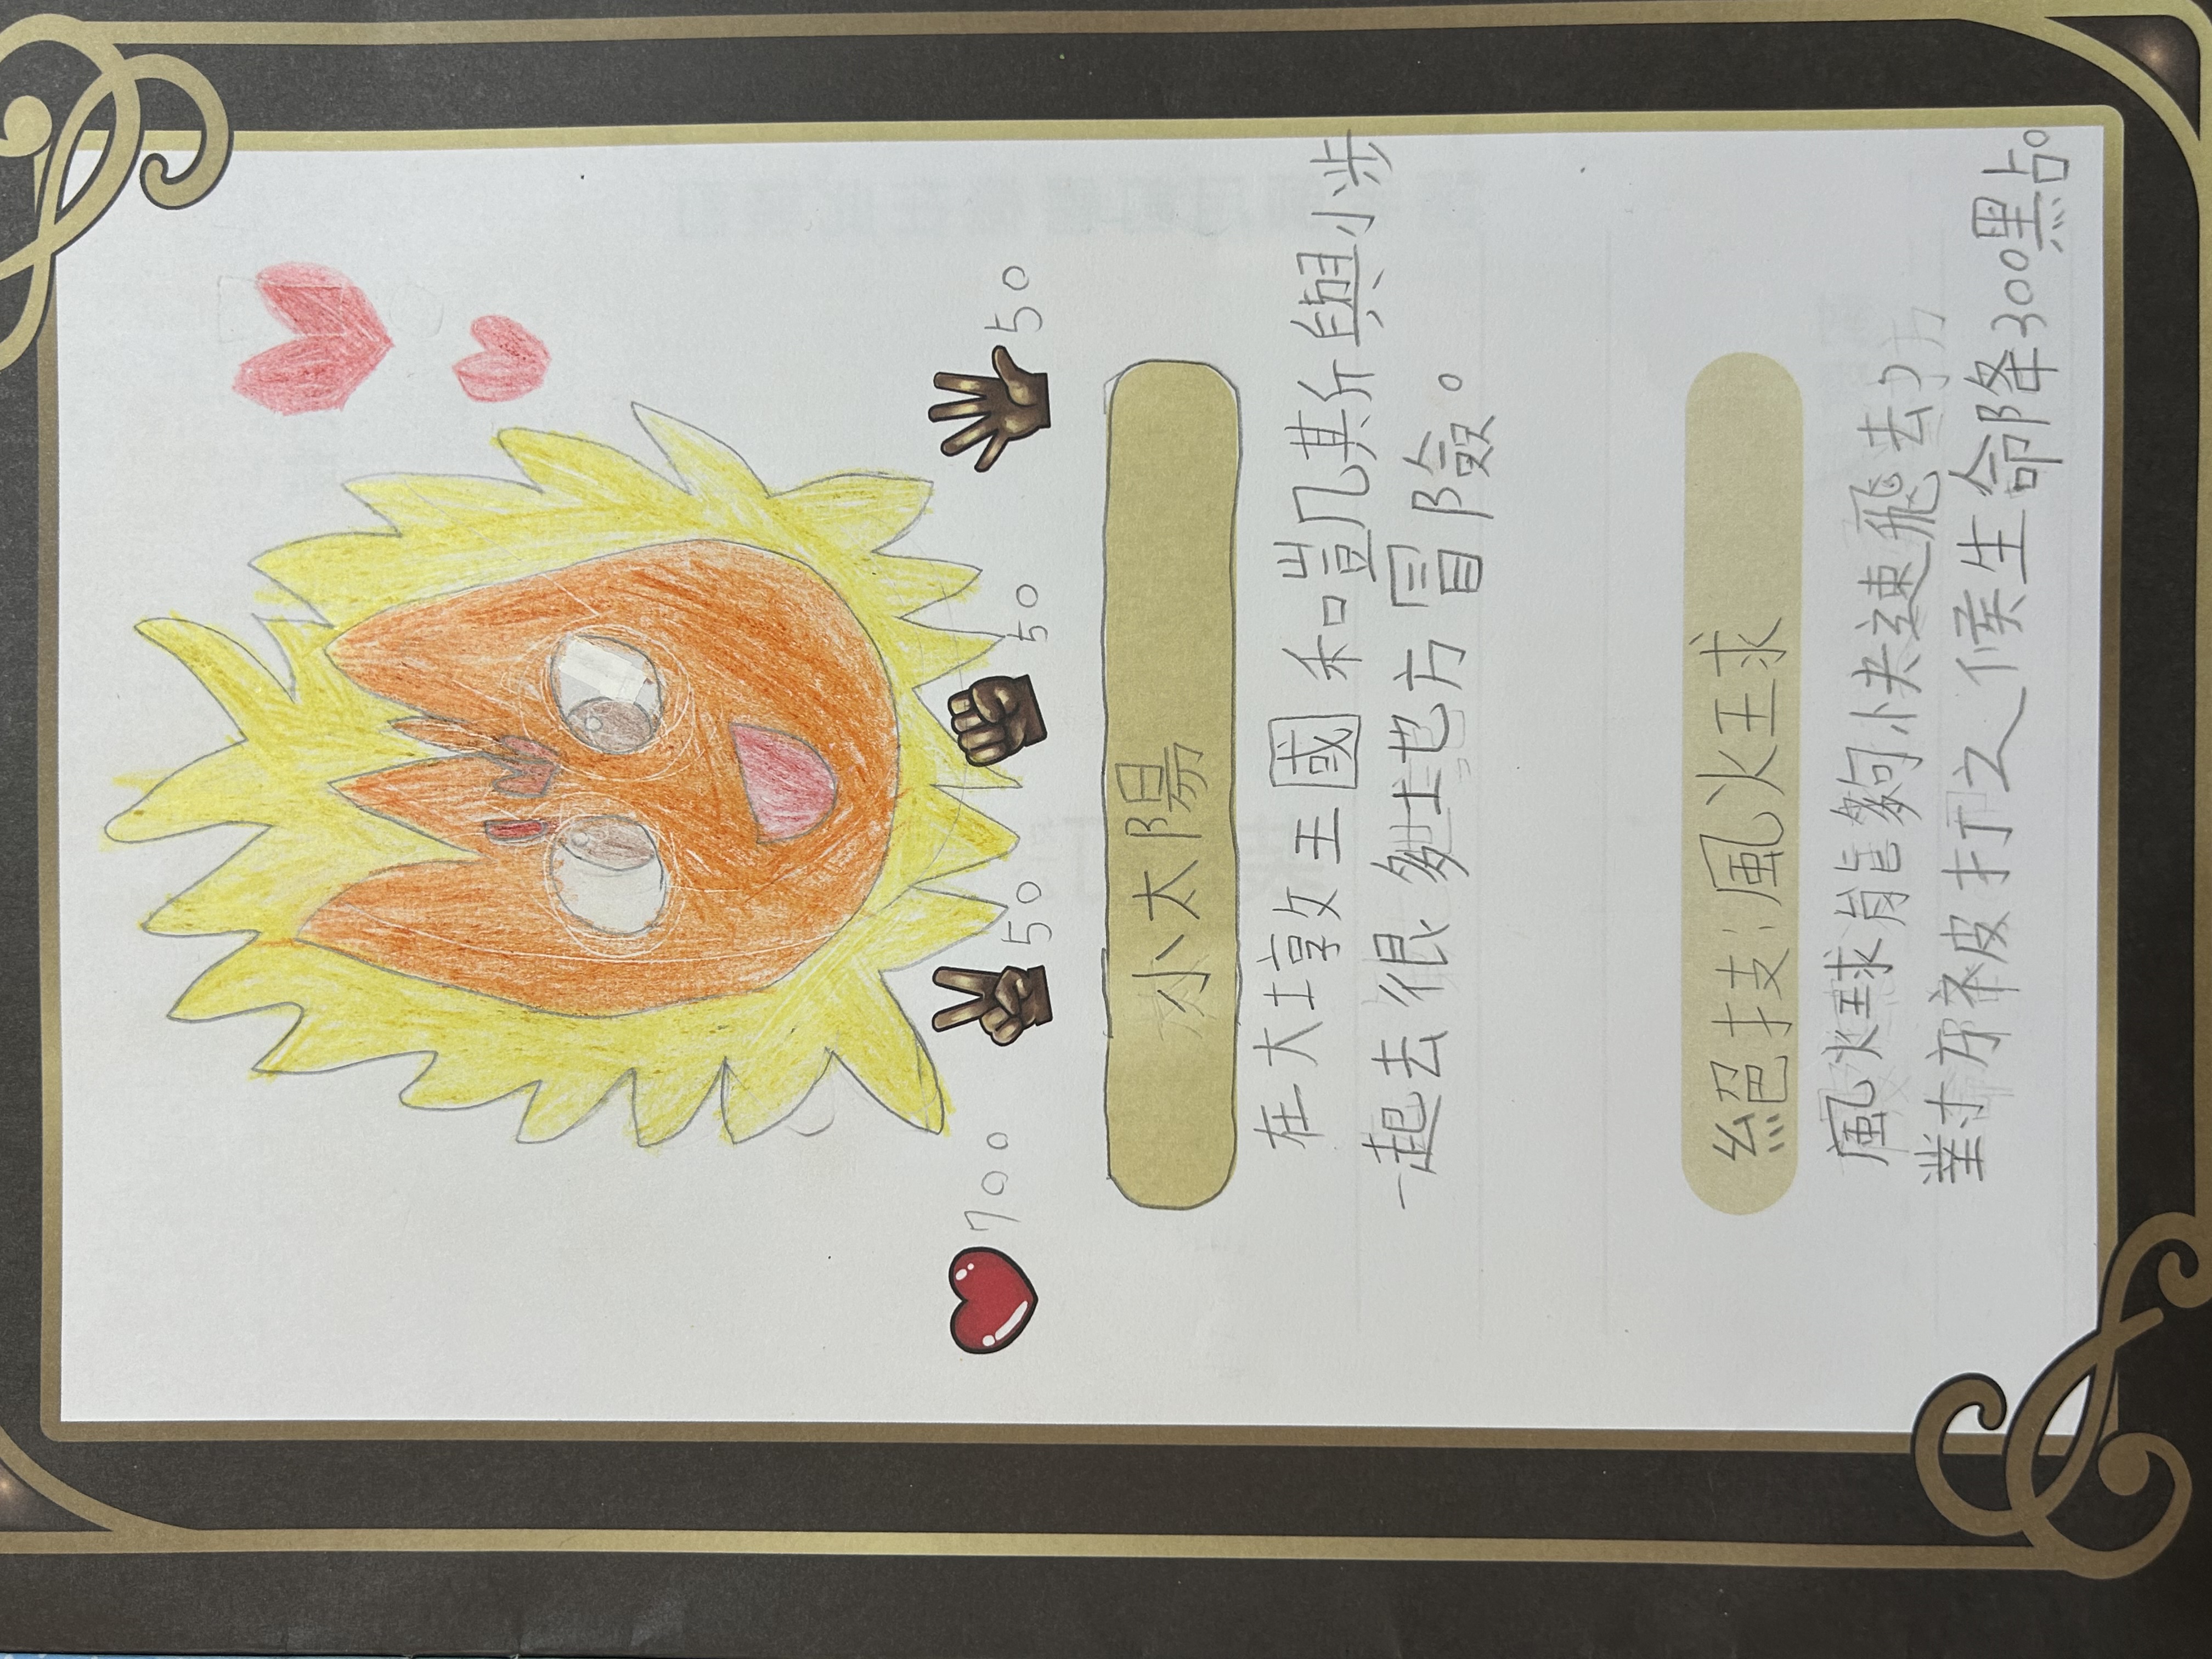 700 50 50 50
小太陽
在大墩王國和凱几斯與小步
一起去很多地方冒險。
絕技:風火王求
風火球能夠快速飛去
對方被打之候生命降300點。